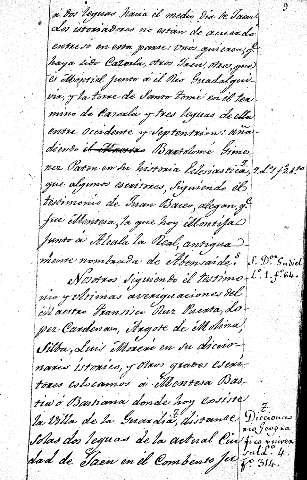 9
á dos leguas hacia el medio dia de Jaen.
Los istoriadores no estan de acuerdo
entre si en esta parte: unos quieren, qe.
haya sido Cazorla, otros Jaen, otros que
es Montiel junto á el Rio Guadalqui-
vir, y la torre de Santo tomé en el ter-
mino de Cazorla y tres leguas de ella
entre Occidente y Septentrion: aña-
diendo el Maestro Bartolomé Gime-
nez Paton en su historia Eclesiastica,
que algunos escritores, siguiendo el
testimonio de Juan Baceo, alegan, qe.
fue Mentesa, la que hoy Montijar
junto á Alcala la Real, antigua-
mente nombrada de Abenzaide.
Nosotros siguiendo el testimo-
nio y ultimas averiguaciones del
Maestro Francisco Ruz Puerta, Lo-
pez Cardenas, Argote de Molina,
Silba, Luis Moreri en su diccio-
nario istorico, y otros graves escri-
tores colocamos á Mentesa Bas-
tia ó Bastiana donde hoy ecsiste
la Villa de la Guardia, distante
solas dos leguas de la actual Ciu-
dad de Jaen en el Combento
L. 1. fo. 64.
Dicciona-
rio Geogra-
fico
fo. 314.